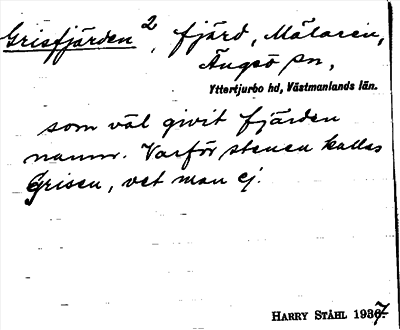 Grisfjärden 2, fjärd, Mälaren,
Ängsö sn,
Yttertjurbo hd, Västmanlands län.
som väl givit fjärden
namn. Varför stenen kallas
Grisen, vet man ej.
HARRY STÅHL 1937